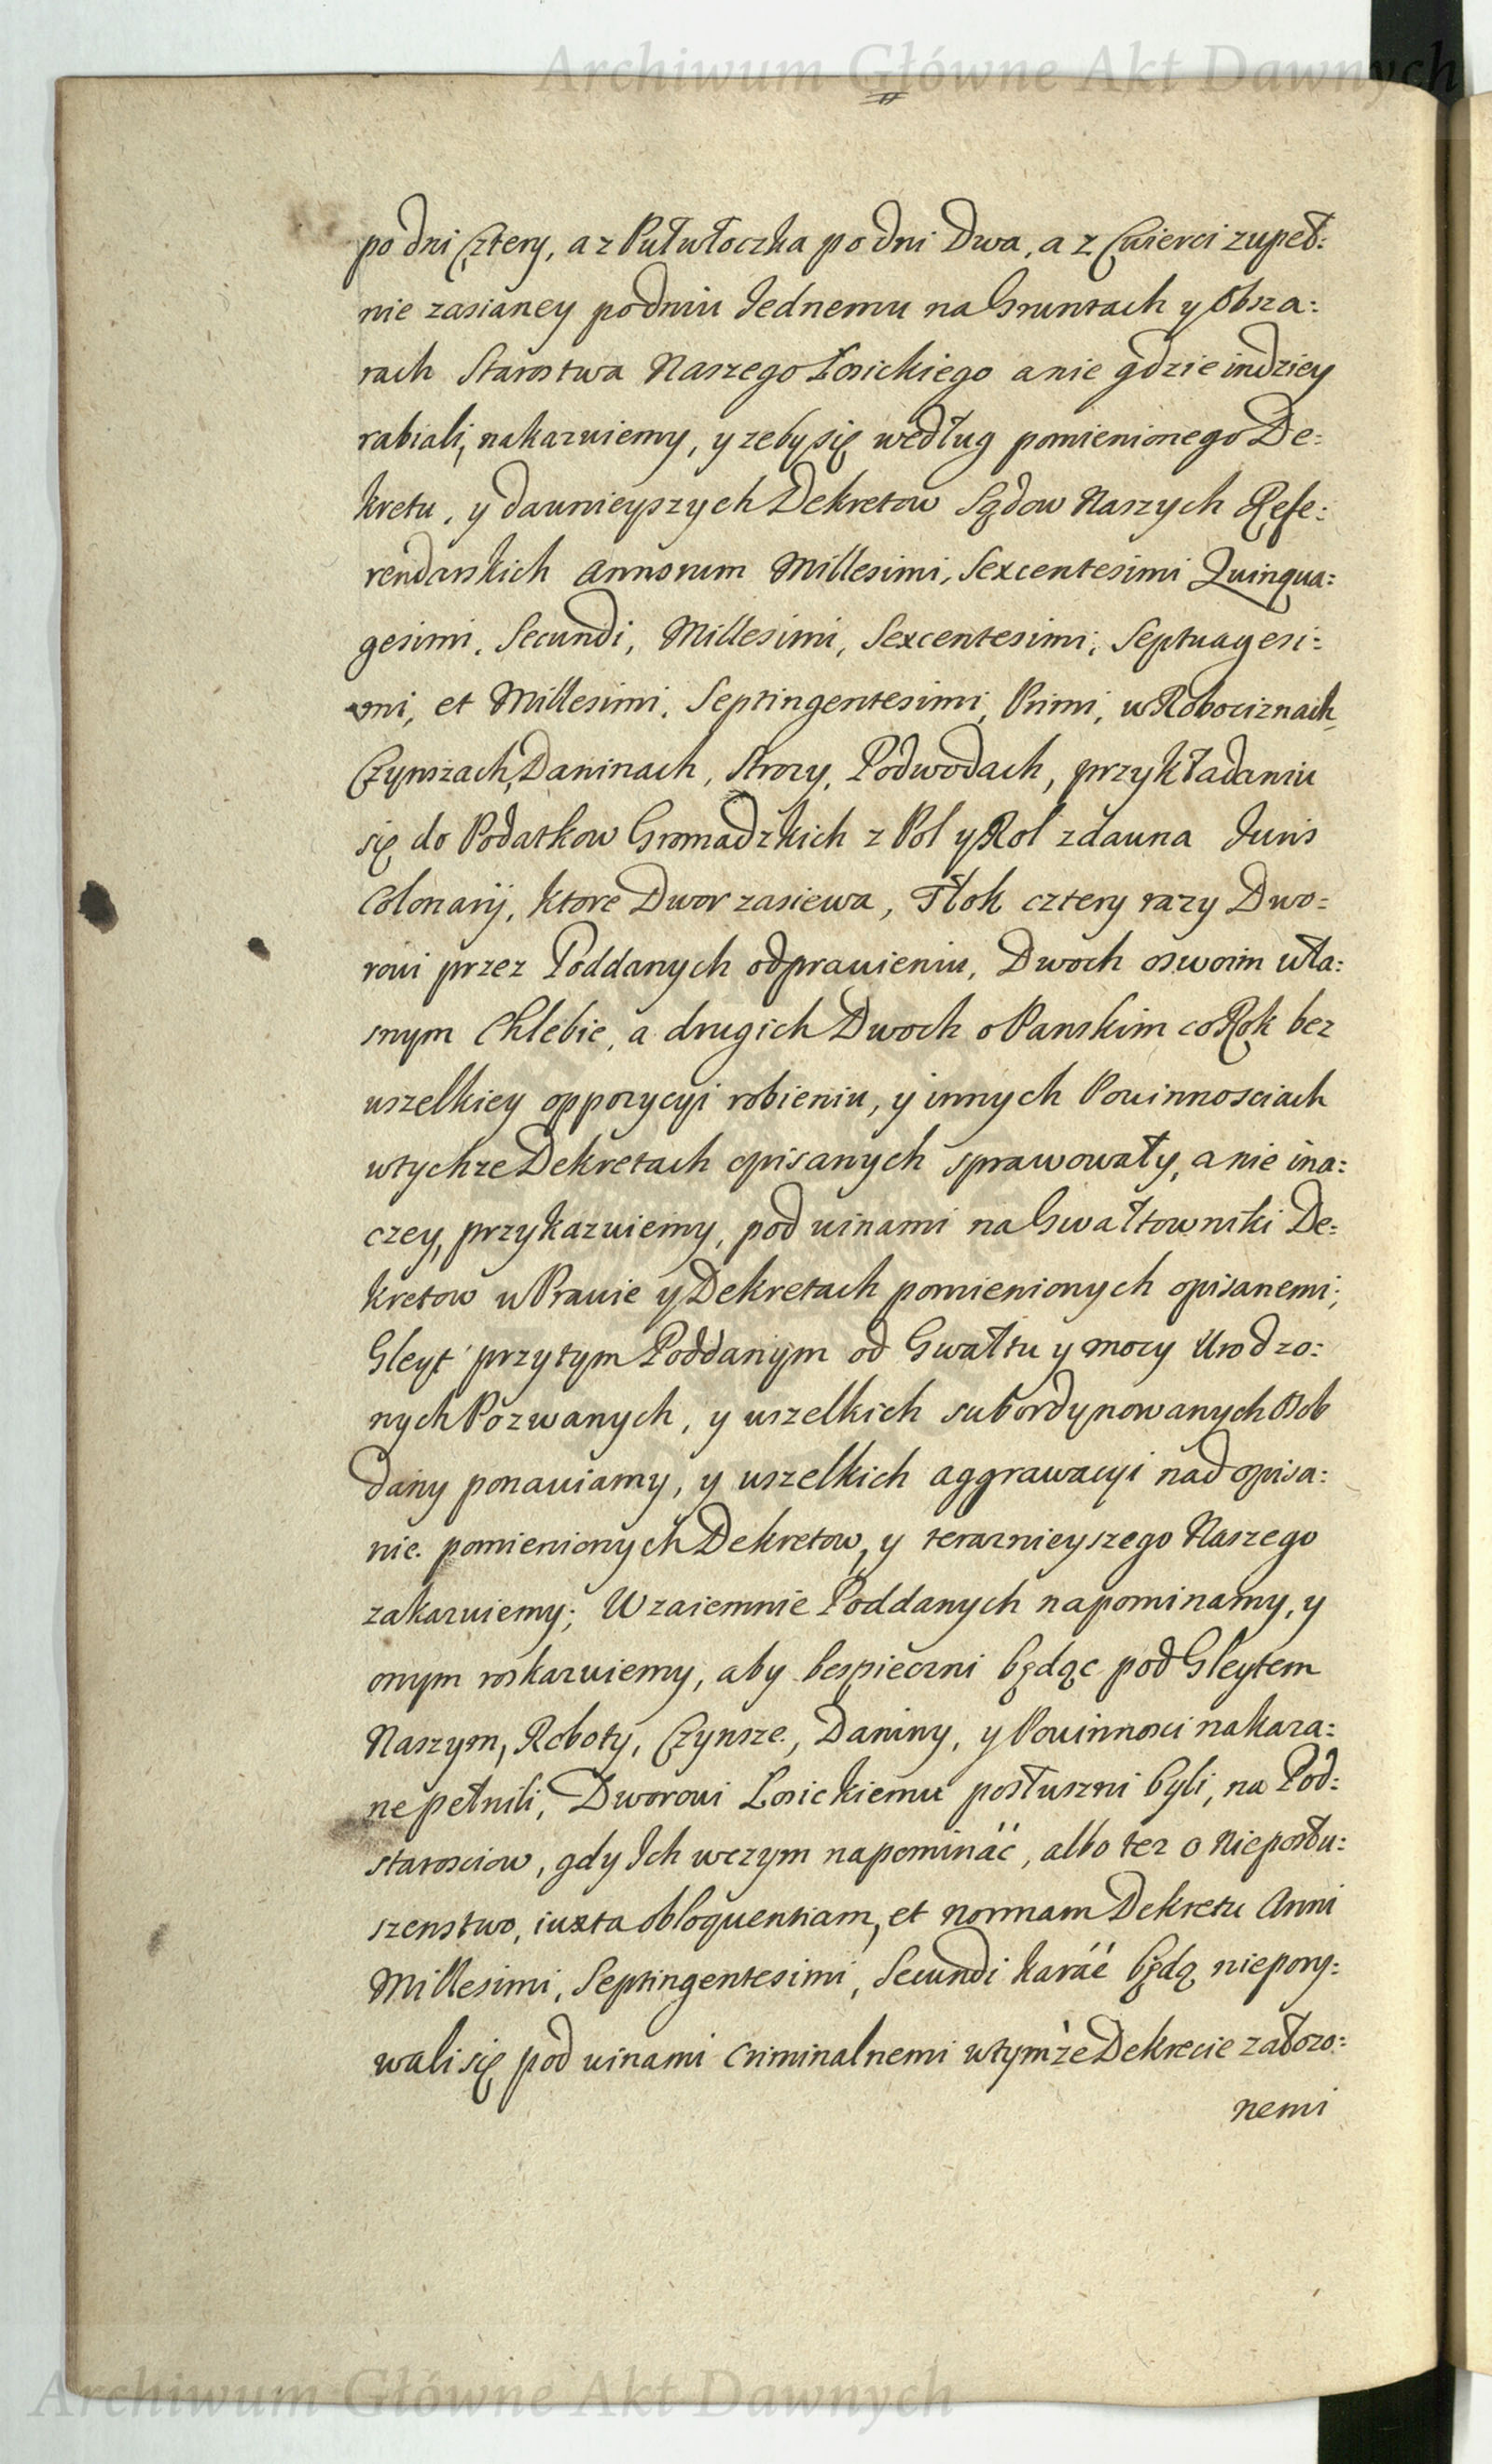 Archiwum Główne Akt Dawnych
po dni Cztery, a z Pułwłoczka po dni Dwa, a z Cwierci zupeł:
nie zasianey po dniu Jednemu na Gruntach y Obsza:
rach Starostwa Naszego Łosickiego a nie gdzie indziey
rabiali, nakazuiemy, y zeby się według pomienionego De:
kretu, y daunieyszych Dekretow Sądow Naszych Refe:
rendarskich Annorum Millesimi, Sexcentesimi Quinqua:
gesimi, Secundi, Millesimi, Sexcentesimi, Septuagesi:
mi, et Millesimi, Septingentesimi, Primi, w Robociznach,
Czynszach, Daninach, Strozy, Podwodach, przykładaniu
się do Podatkow Gromadzkich z Pol y Rol zdauna Juris
Colonarij, ktore Dwor zasiewa, Tłok cztery razy Dwo:
roui przez Poddanych odprauieniu, Dwoch o swoim wła:
snym Chlebie, a drugich Dwoch o Panskim co Rok bez
uszelkiey oppozycyi robieniu, y innych Pouinnosciach
wtychze Dekretach opisanych sprawowały, a nie ina:
czey, przykazuiemy, pod uinami na Gwałtowniki De:
kretow w Prauie y Dekretach pomienionych opisanemi;
Gleyt przytym Poddanym od Gwałtu y mocy Urodzo:
nych Pozwanych, y uszelkich subordynowanych Osob
dany ponauiamy, y uszelkich aggrawacyi nad opisa:
nie pomienionych Dekretow, y teraznieyszego Naszego
zakazuiemy; Wzaiemnie Poddanych napominamy, y
onym roskazuiemy, aby bespieczni będąc pod Gleytem
Naszym, Roboty, Czynsze, Daniny, y Pouinnosci nakaza:
ne pełnili, Dworoui Losickiemu posłuszni byli, na Pod:
starosciow, gdy Ich wczym napominać, albo tez o Nieposłu:
szenstwo, iuxta obloquentiam, et normam Dekretu Anni
Millesimi, Septingentesimi, Secundi karać będą niepory:
wali się pod uinami Criminalnemi wtymże Dekrecie załozo:
nemi
Archiwum Główne Akt Dawnych